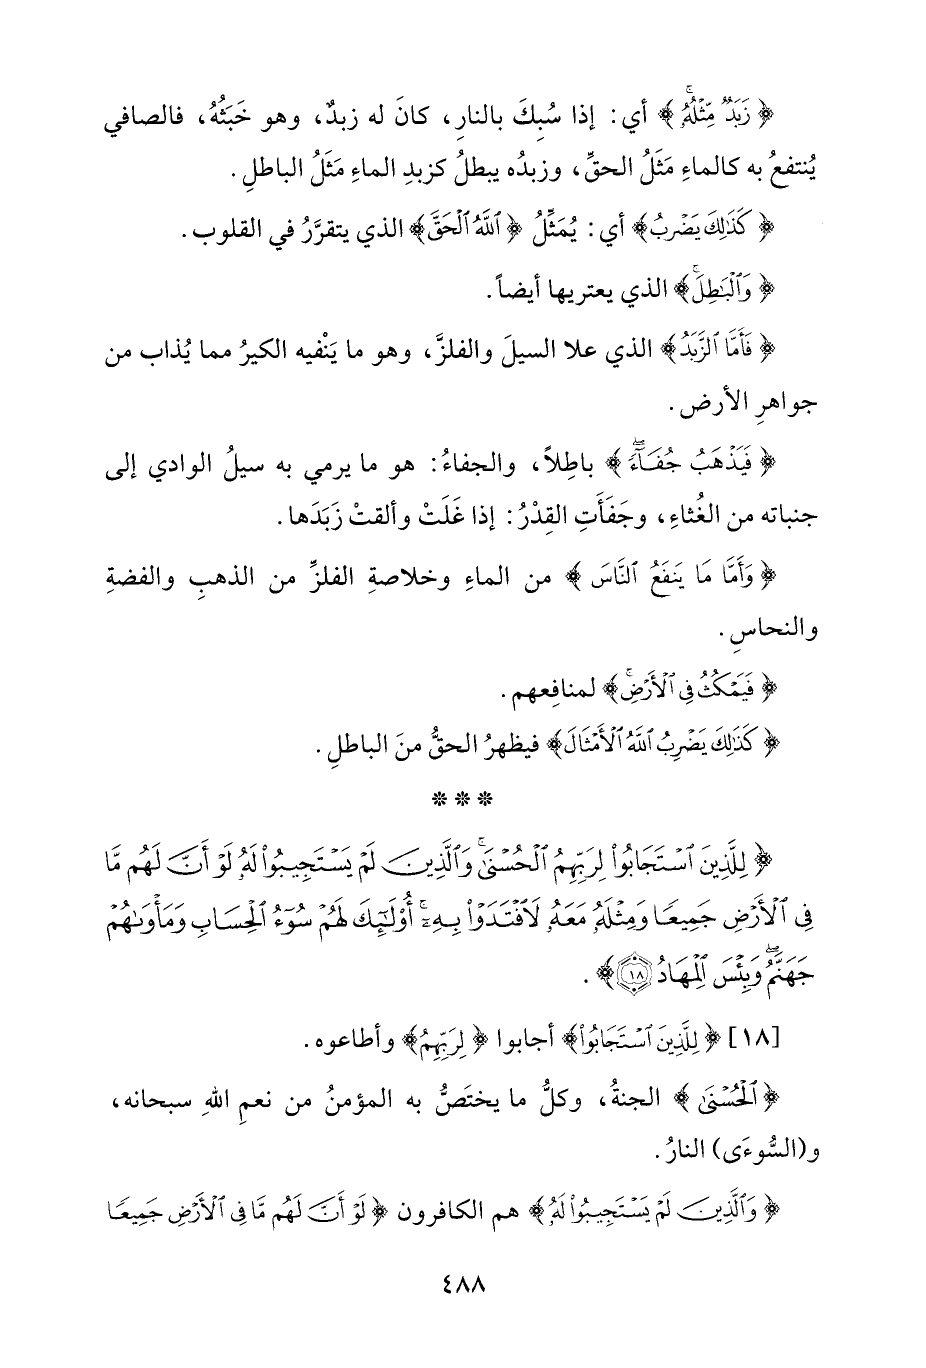 ﴿ زَبَدٌ مِّثْلُهُۥ ۚ ﴾ أي: إذا سُبِكَ بالنارِ، كانَ له زبدٌ، وهو خَبَثُهُ، فالصافي
يُنتفعُ به كالماءِ مَثَلُ الحقِّ، وزبدُه يبطلُ كزبدِ الماءِ مَثَلُ الباطلِ.
﴿ كَذَٰلِكَ يَضْرِبُ ﴾ أي: يُمَثِّلُ ﴿ ٱللَّهُ ٱلْحَقَّ ﴾ الذي يتقرَّرُ في القلوب.
﴿ وَٱلْبَٰطِلَ ۚ ﴾ الذي يعتريها أيضاً.
﴿ فَأَمَّا ٱلزَّبَدُ ﴾ الذي علا السيلَ والفلزَّ، وهو ما يَنْفيه الكيرُ مما يُذاب من
جواهرِ الأرض.
﴿ فَيَذْهَبُ جُفَآءً ۖ ﴾ باطِلاً، والجفاءُ: هو ما يرمي به سيلُ الوادي إلى
جنباته من الغُثاءِ، وجَفَأَتِ القِدْرُ: إذا غَلَتْ وألقتْ زَبَدَها.
﴿ وَأَمَّا مَا يَنفَعُ ٱلنَّاسَ ﴾ من الماءِ وخلاصةِ الفلزِّ من الذهبِ والفضةِ
والنحاسِ.
﴿ فَيَمْكُثُ فِى ٱلْأَرْضِ ۚ ﴾ لمنافِعهم.
﴿ كَذَٰلِكَ يَضْرِبُ ٱللَّهُ ٱلْأَمْثَالَ ﴾ فيظهرُ الحقُّ منَ الباطلِ.
* * *
﴿ لِلَّذِينَ ٱسْتَجَابُوا۟ لِرَبِّهِمُ ٱلْحُسْنَىٰ ۚ وَٱلَّذِينَ لَمْ يَسْتَجِيبُوا۟ لَهُۥ لَوْ أَنَّ لَهُم مَّا
فِى ٱلْأَرْضِ جَمِيعًا وَمِثْلَهُۥ مَعَهُۥ لَٱفْتَدَوْا۟ بِهِۦٓ ۚ أُو۟لَٰٓئِكَ لَهُمْ سُوٓءُ ٱلْحِسَابِ وَمَأْوَىٰهُمْ
جَهَنَّمُ ۖ وَبِئْسَ ٱلْمِهَادُ ١٨ ﴾.
[١٨] ﴿ لِلَّذِينَ ٱسْتَجَابُوا۟ ﴾ أجابوا ﴿ لِرَبِّهِمُ ﴾ وأطاعوه.
﴿ ٱلْحُسْنَىٰ ﴾ الجنةُ، وكلُّ ما يختَصُّ به المؤمنُ من نعمِ اللهِ سبحانه،
و(السُّوءَى) النارُ.
﴿ وَٱلَّذِينَ لَمْ يَسْتَجِيبُوا۟ لَهُۥ ﴾ هم الكافرون ﴿ لَوْ أَنَّ لَهُم مَّا فِى ٱلْأَرْضِ جَمِيعًا
٤٨٨